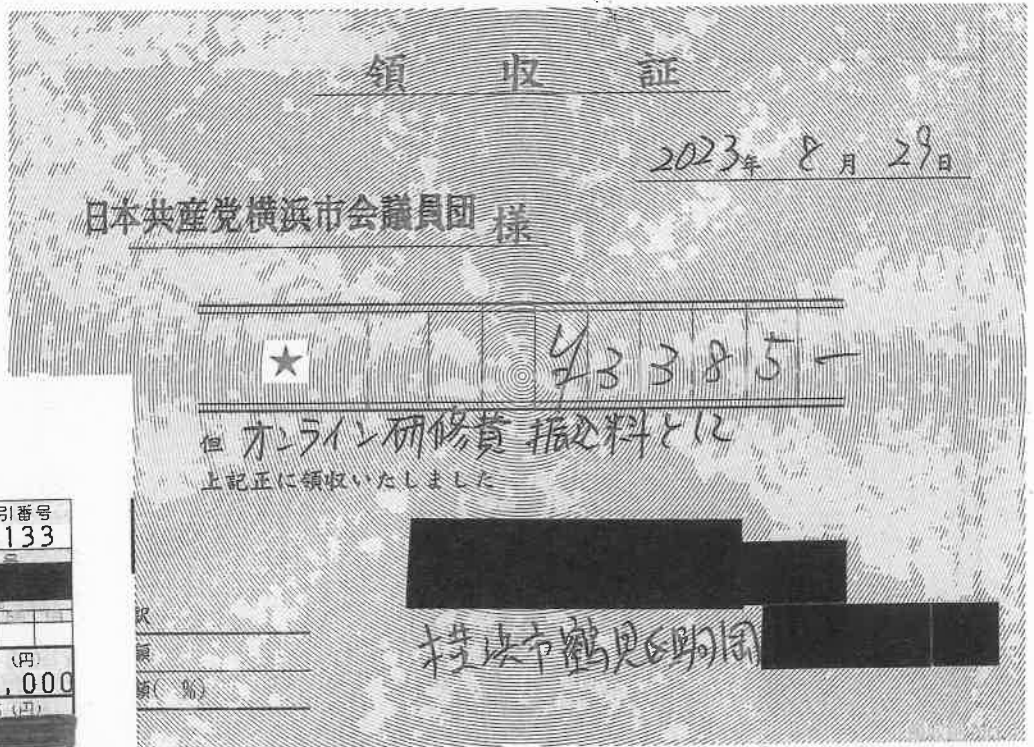 領収証
2023年 8月 29日
日本共産党横浜市会議員団 様
★ ¥3385-
但 オンライン研修費 振込料として
上記正に領収いたしました
引番号
133
(円)
,000
(円)
訳
額
額( %)
横浜市鶴見区